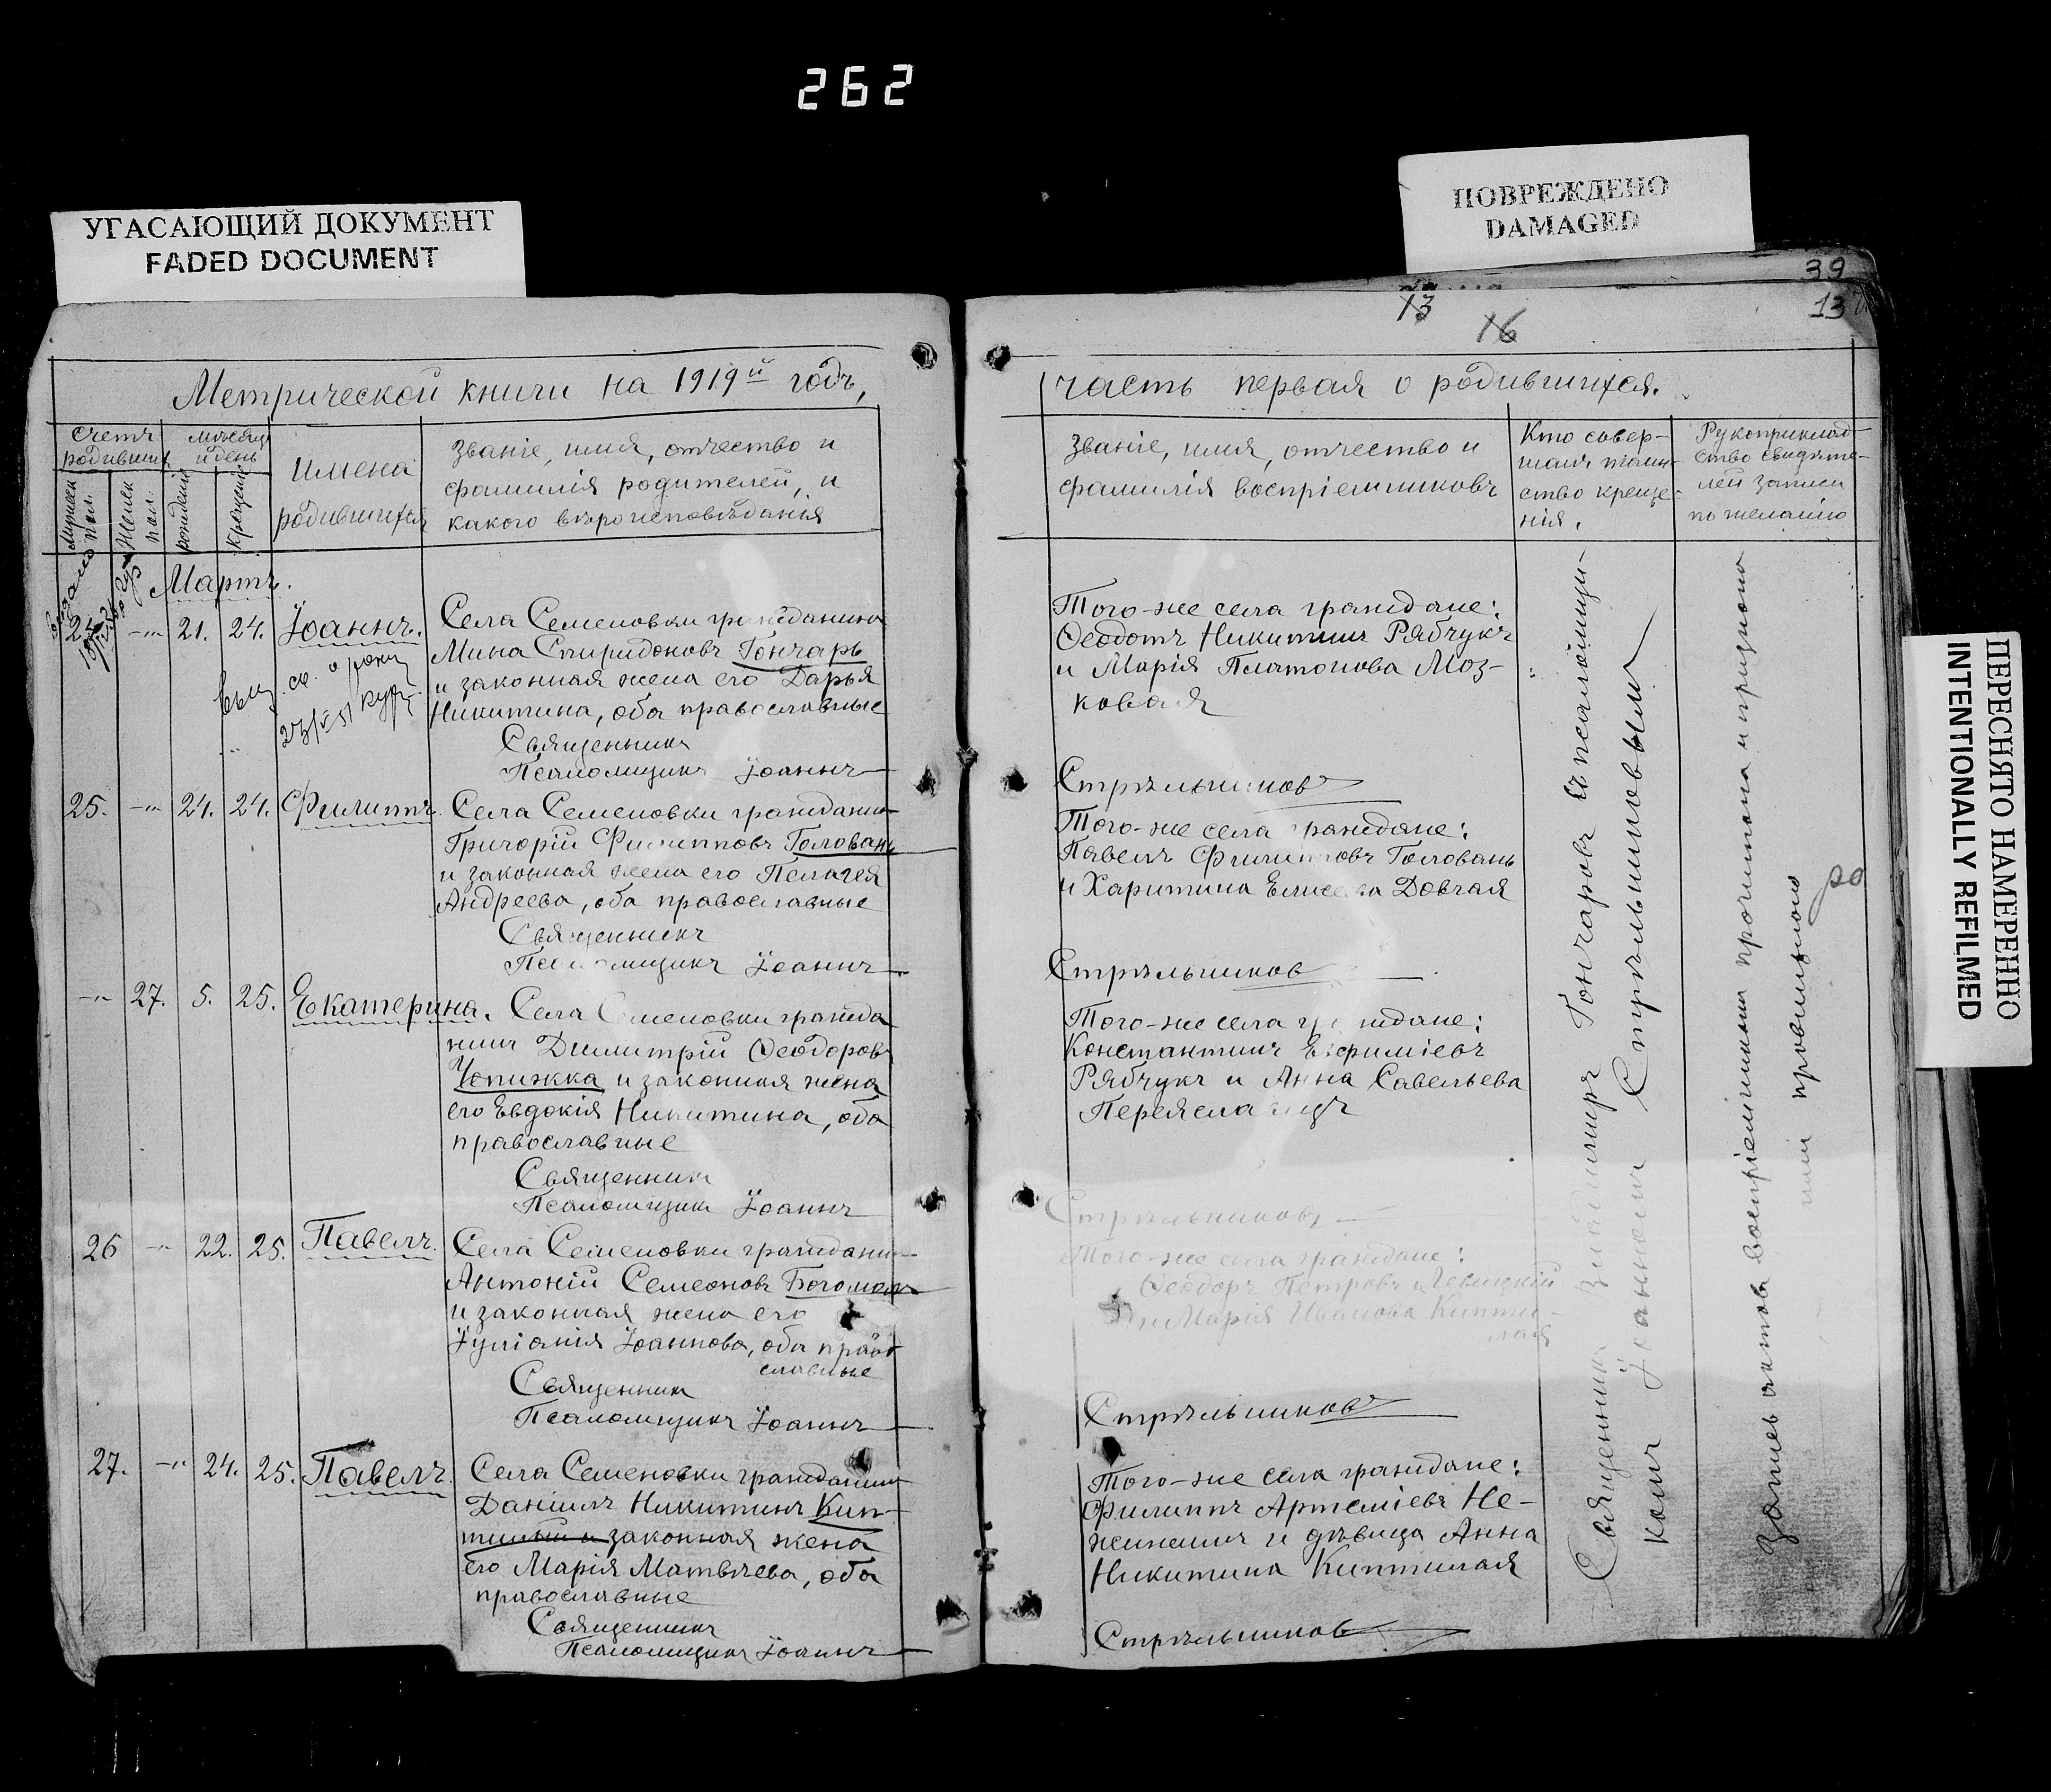 262
УГАСАЮЩИЙ ДОКУМЕНТ
FADED DOCUMENT
ПОВРЕЖДЕНО
DAMAGED
ПЕРЕСНЯТО НАМЕРЕННО
INTENTIONALLY REFILMED
39
13
13
16
Метрической книги на 1919й годъ,
счетъ родившихъ
мѣсяцъ и день
Мужеска пол.
Женск пол.
рожденія
крещенія
имена
родившихся
Званіе, имя, отчество и
фамилія родителей, и
какого вѣроисповѣданія
Мартъ.
24. -„- 21. 24. Іоаннъ.
Села Семеновки гражданинъ
Мина Спиридоновъ Гончаръ
и законная жена его Дарья
Никитина, оба православные
Священникъ
Псаломщикъ Іоаннъ
25. -„- 24. 24. Филиппъ.
Села Семеновки гражданинъ
Григорій Филипповъ Головань
и законная жена его Пелагея
Андреева, оба православные
Священникъ
Псаломщикъ Іоаннъ
-„- 27. 5. 25. Екатерина.
Села Семеновки гражда
нинъ Димитрій Ѳеодоровъ
Чепижка и законная жена
его Евдокія Никитина, оба
православные
Священникъ
Псаломщикъ Іоаннъ
26 -„- 22. 25. Павелъ.
Села Семеновки гражданинъ
Антоній Семеоновъ Богомолъ
и законная жена его
Іуліанія Іоаннова, оба право
славные
Священникъ
Псаломщикъ Іоаннъ
27. -„- 24. 25. Павелъ.
Села Семеновки гражданинъ
Даніилъ Никитинъ Кип-
тилый и законная жена
его Марія Матвѣева, оба
православные
Священникъ
Псаломщикъ Іоаннъ
часть первая о родившихся.
Званіе, имя, отчество и
фамилія воспріемниковъ
Кто совер-
шалъ таин-
ство креще-
нія.
Рукоприклад-
ство свидѣте-
лей записи
по желанію
Того-же села граждане:
Ѳеодотъ Никитинъ Рябчукъ
и Марія Платонова Моз-
ковая
Стрѣльниковъ
Того-же села граждане:
Павелъ Филипповъ Головань
и Харитина Елисеева Довгая
Стрѣльниковъ
Того-же села граждане:
Константинъ Евфиміевъ
Рябчукъ и Анна Савельева
Переяславецъ
Стрѣльниковъ
Того-же села граждане:
Ѳеодоръ Петровъ Левицкій
и Марія Иванова Кипти-
лая
Стрѣльниковъ
Того-же села граждане:
Филиппъ Артеміевъ Не-
жинецъ и дѣвица Анна
Никитина Киптилая
Стрѣльниковъ
Священникъ Владиміръ Гончаровъ съ псаломщи-
комъ Іоанномъ Стрѣльниковымъ
Запись актовъ воспріемникамъ прочитана и признана
ими правильною